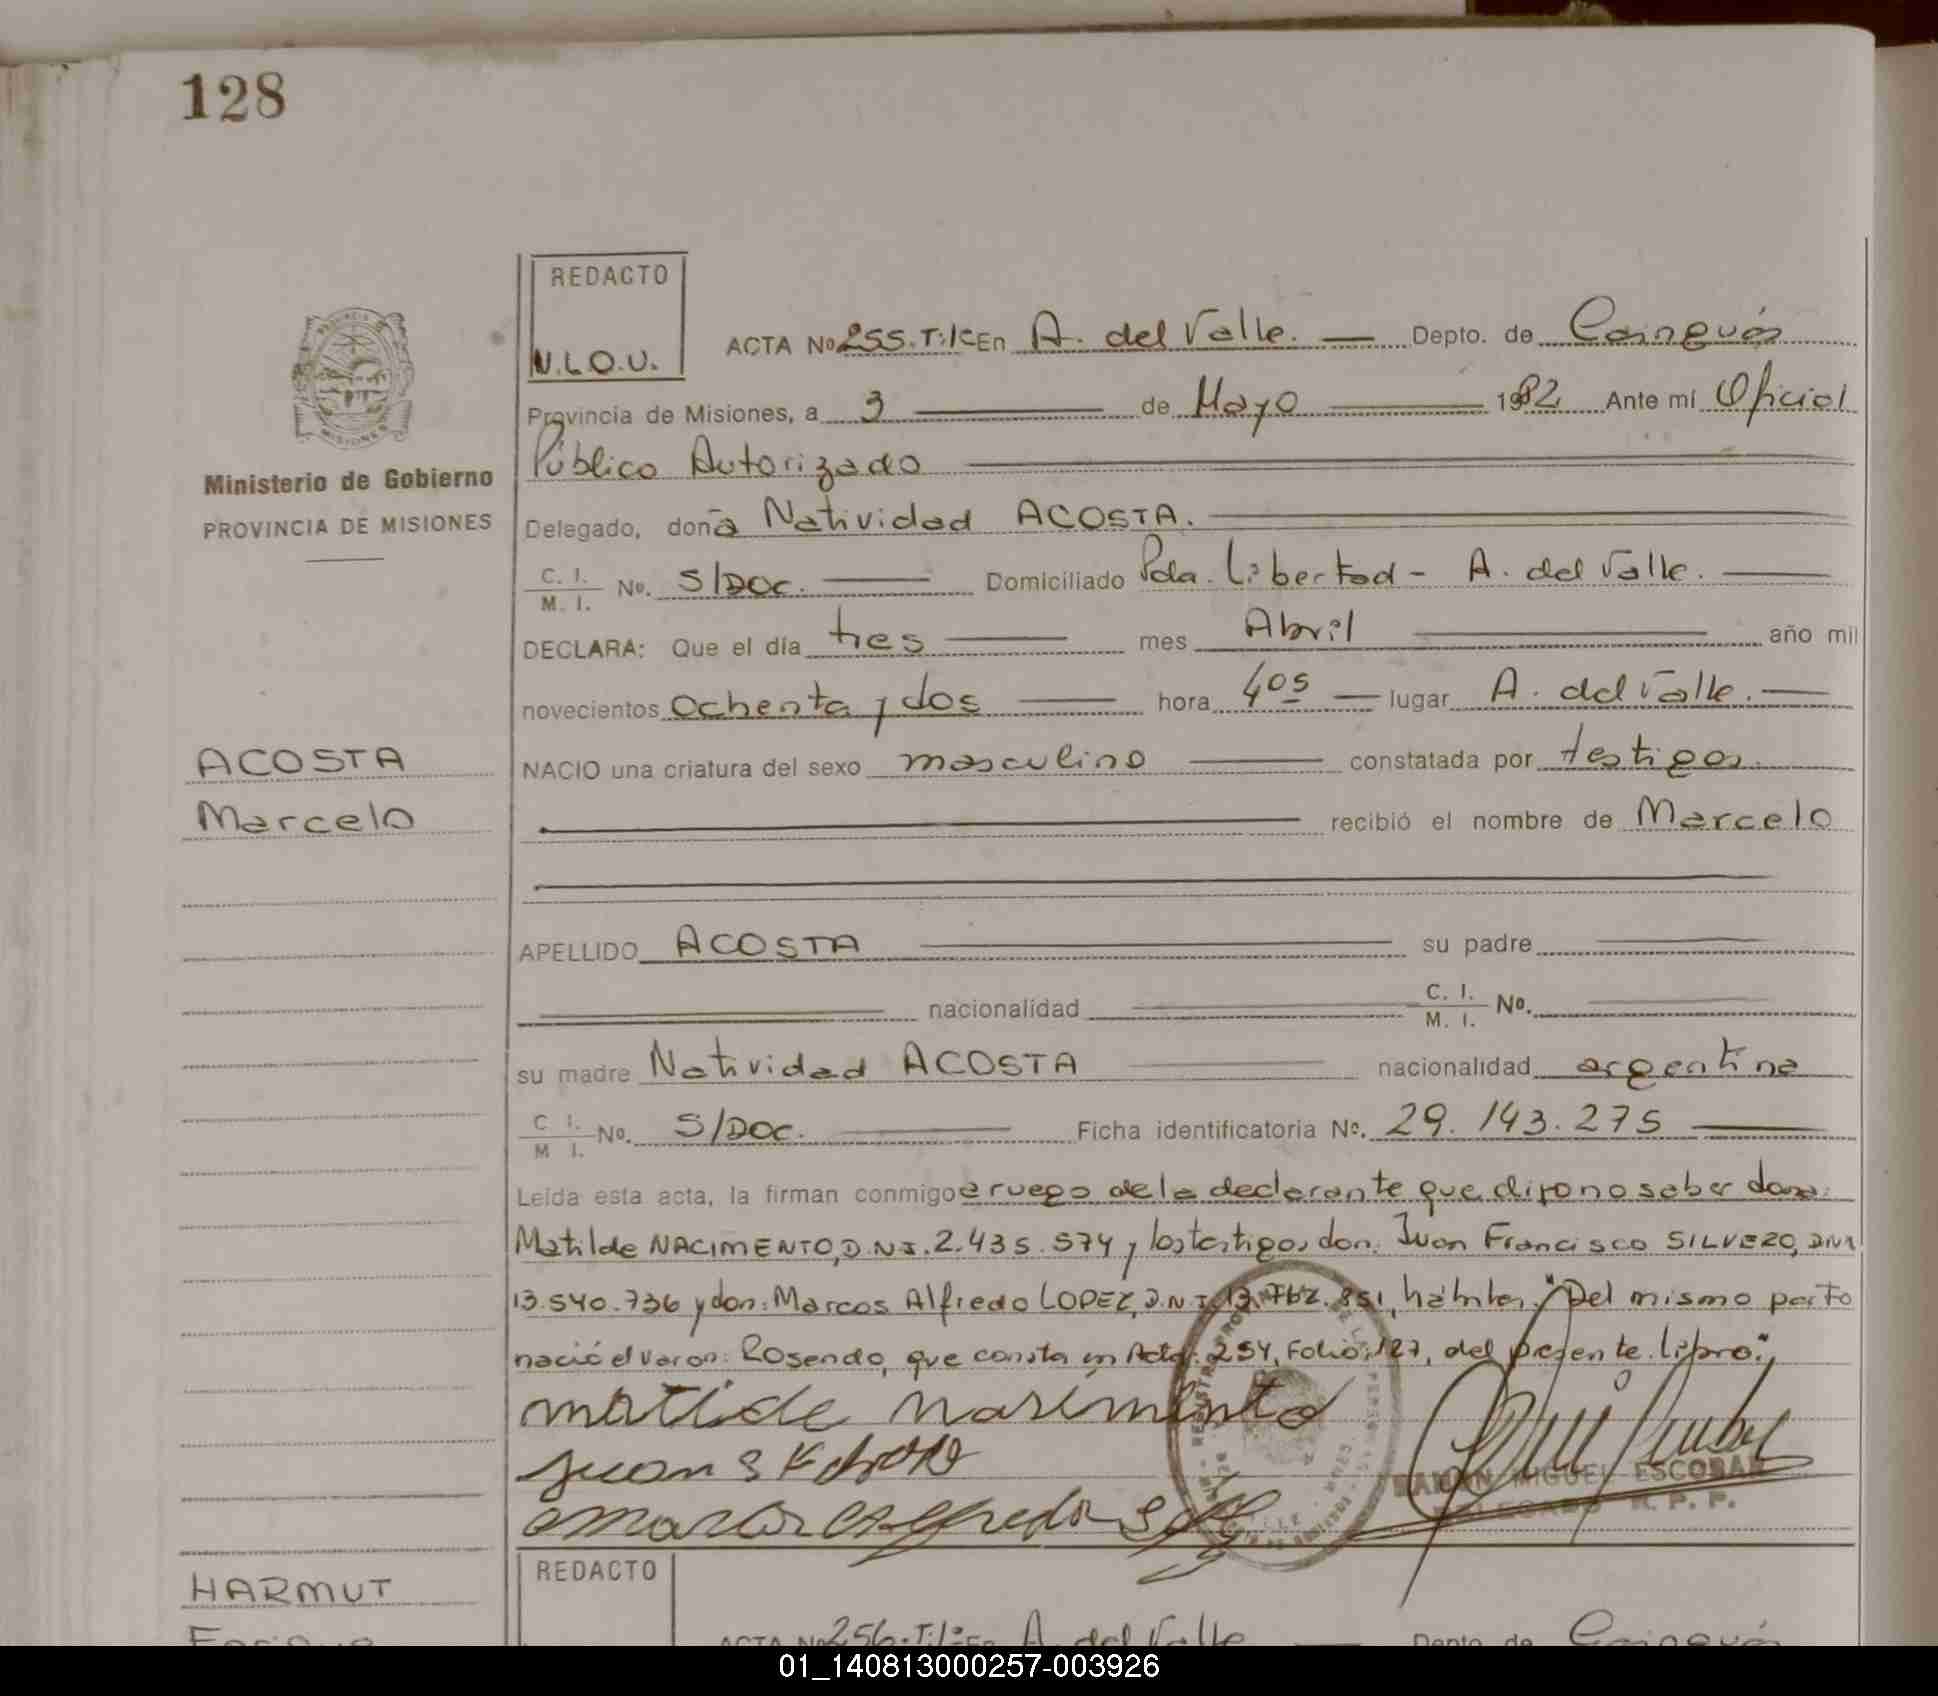 128
REDACTO
N.L.O.U.
ACTA Nº 255.T:1º En A. del Valle. Depto. de Cainguás
Provincia de Misiones, a 3 de Mayo 1982 Ante mí Oficial
Público Autorizado
Ministerio de Gobierno
PROVINCIA DE MISIONES
Delegado, doña Natividad ACOSTA.
C. I. / M. I. No. S/DOC. Domiciliado Pda. Libertad - A. del Valle.
DECLARA: Que el día tres mes Abril año mil
novecientos ochenta y dos hora 4 05 lugar A. del Valle.
ACOSTA
Marcelo
NACIO una criatura del sexo masculino constatada por testigos.
recibió el nombre de Marcelo
APELLIDO ACOSTA su padre
nacionalidad C. I. / M. I. No.
su madre Natividad ACOSTA nacionalidad argentina
C I. / M I. No. S/DOC. Ficha identificatoria No. 29.143.275
Leída esta acta, la firman conmigo a ruego de la declarante que dijo no saber doña:
Matilde NACIMENTO, D.N.I. 2.435.574 y los testigos don: Juan Francisco SILVERO, DNI
13.540.736 y don: Marcos Alfredo LOPEZ, D.N.I. 13.762.851, hábiles. "Del mismo parto
nació el varon: Rosendo, que consta en Acta: 254, Folio: 127, del presente libro".
matilde nasimento
juan
RAMON MIGUEL ESCOBAR
DELEGADO R. P. P.
HARMUT
Enrique
REDACTO
ACTA Nº 256.T:1º En A. del Valle Depto. de Cainguás
01_140813000257-003926